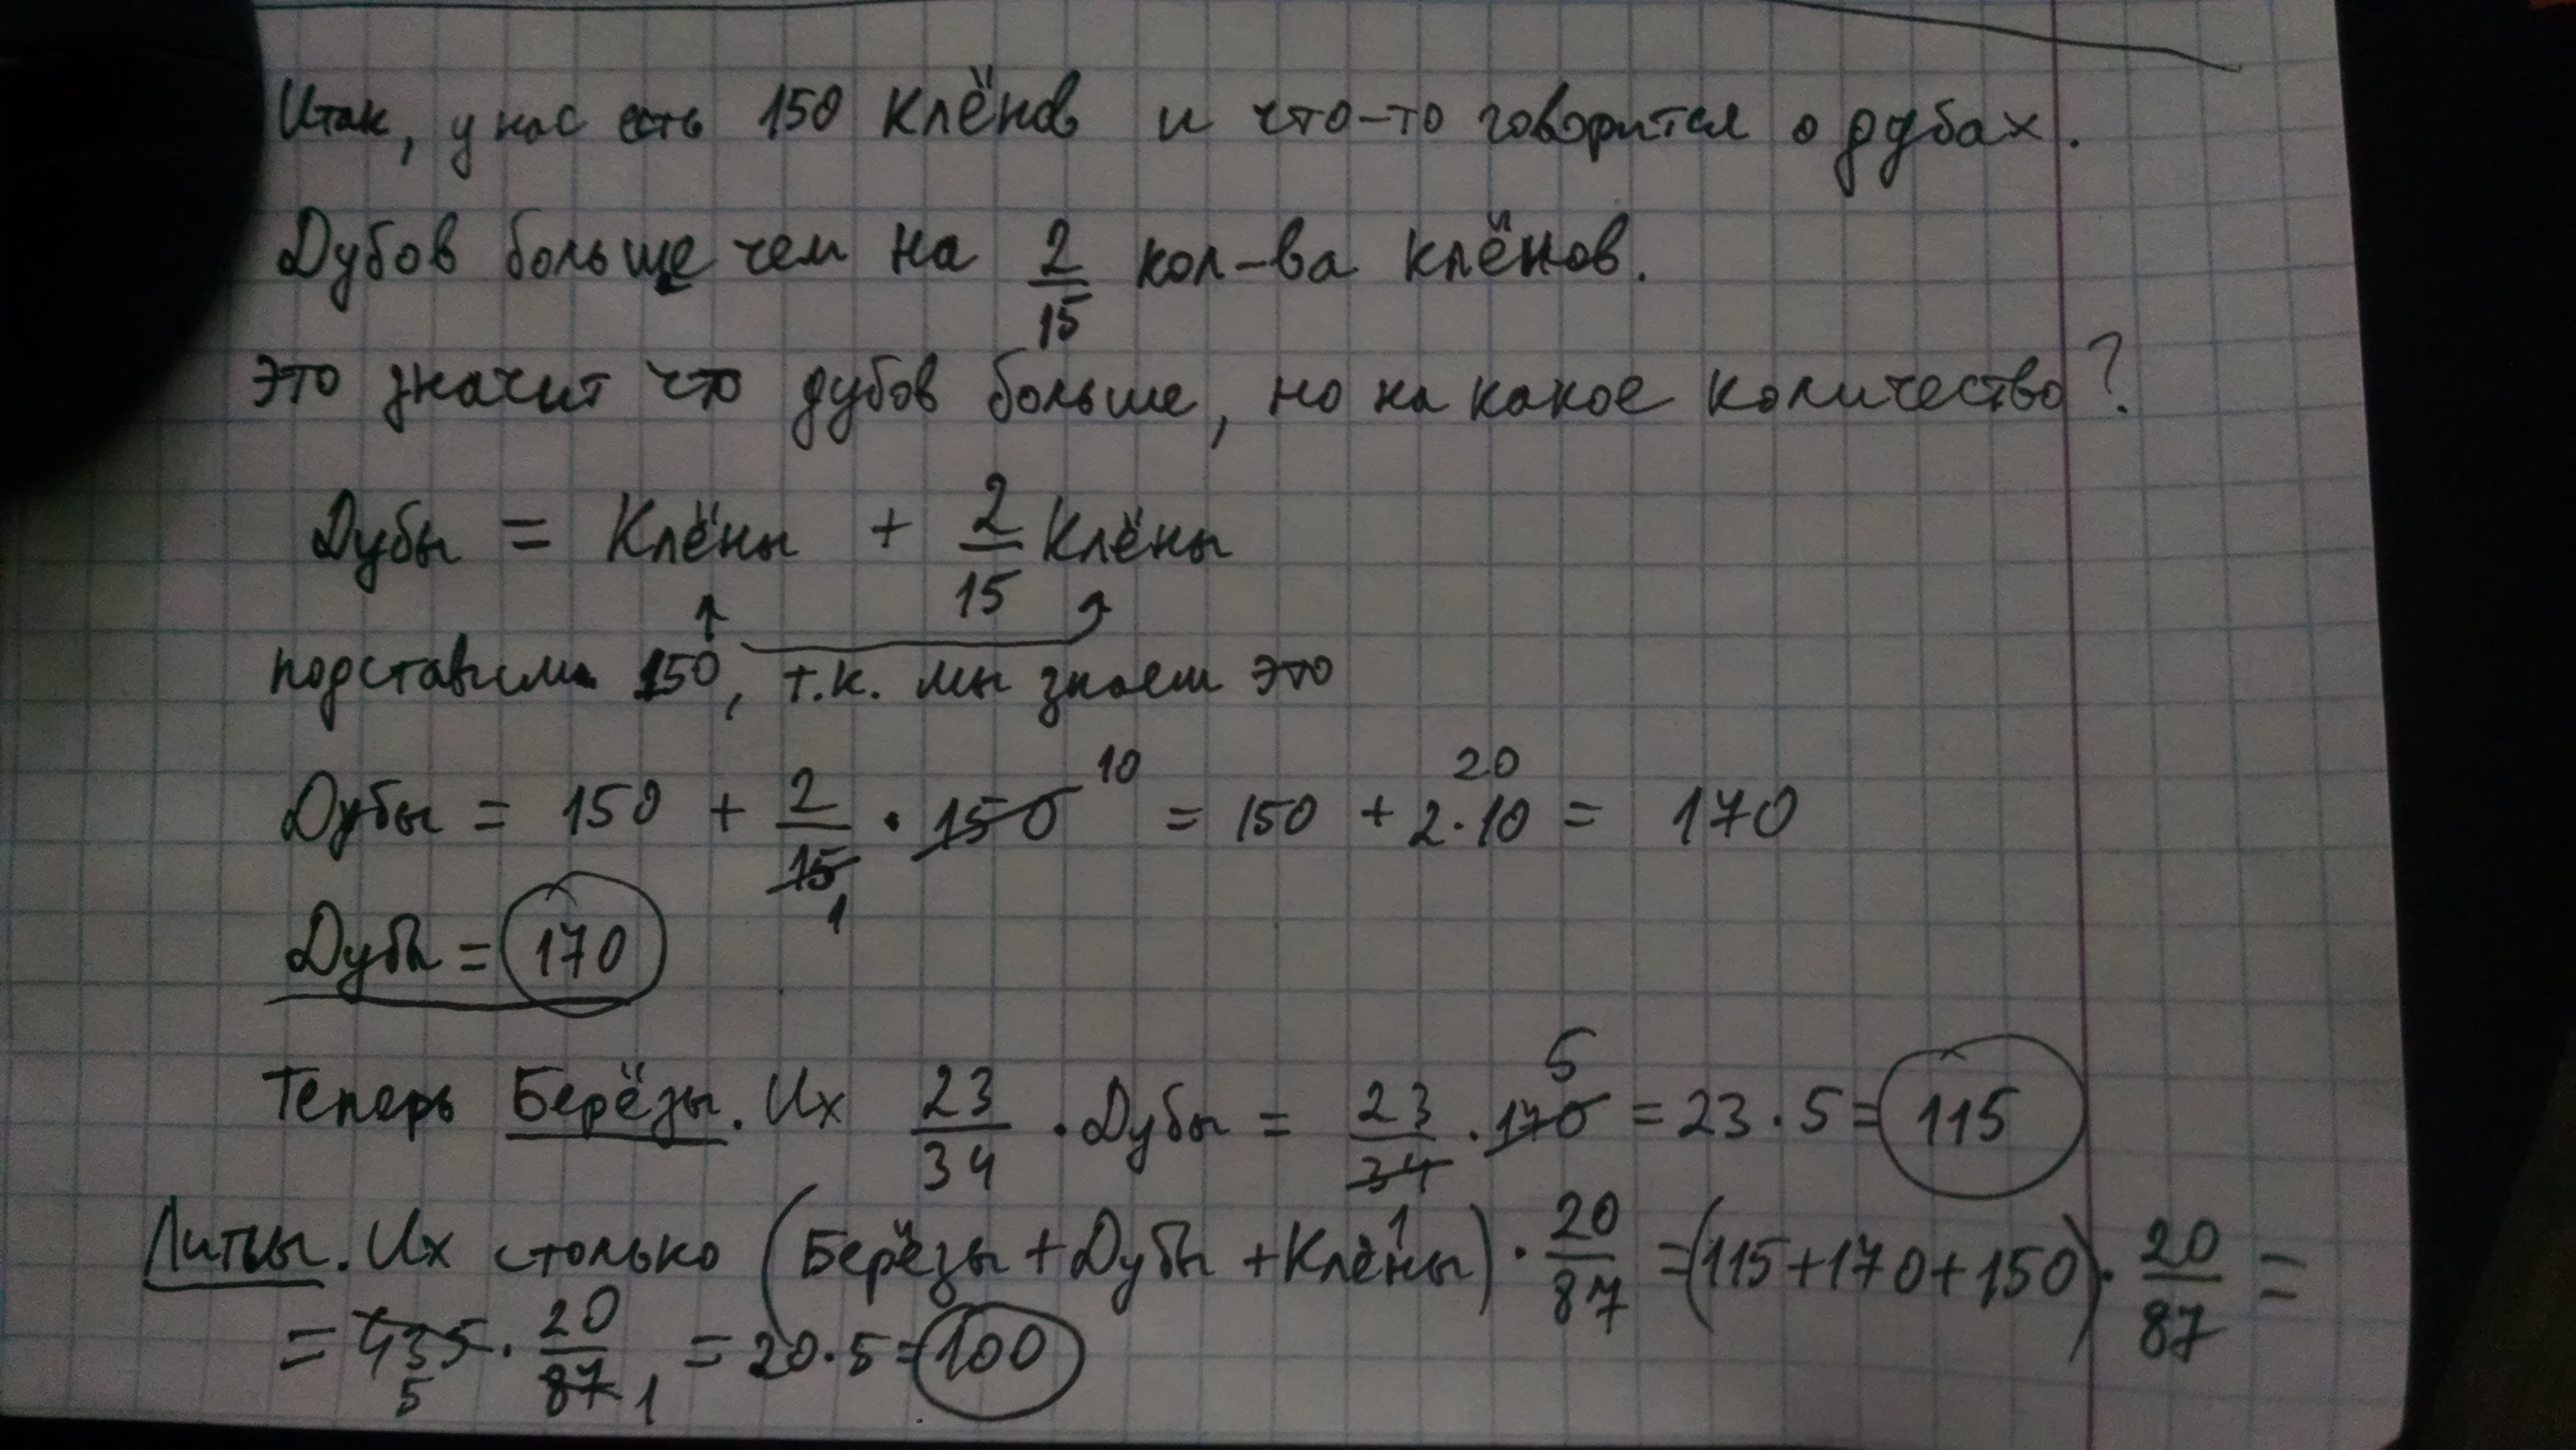 Итак, у нас есть 150 Клёнов и что-то говорится о дубах.
Дубов больше чем на 2/15 кол-ва клёнов.
Это значит что дубов больше, но на какое количество?
Дубы = Клёны + 2/15 Клёны
подставим 150, т.к. мы знаем это
Дубы = 150 + 2/15 · 150 = 150 + 2·10 = 170
10
20
1
Дубы = 170
Теперь Берёзы. Их 23/34 · Дубы = 23/34 · 170 = 23 · 5 = 115
5
1
Липы. Их столько (Берёзы + Дубы + Клёны) · 20/87 = (115+170+150) · 20/87 =
= 435 · 20/87 = 20·5 = 100
5
1